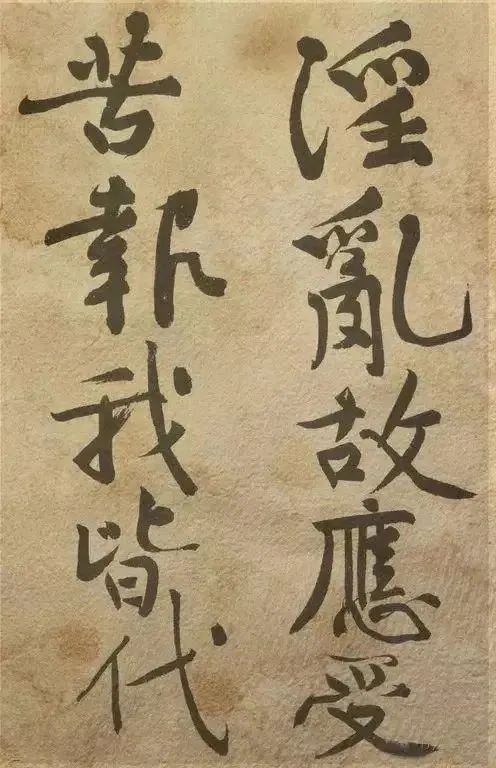 淫亂故應受
苦報我皆代